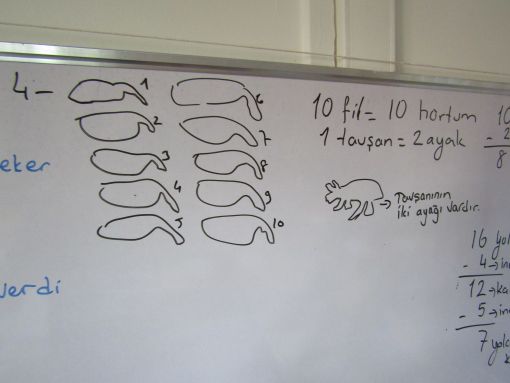 4-
1
2
3
4
5
6
7
8
9
10
10 fil = 10 hortum
1 tavşan = 2 ayak
Tavşanının
iki ayağı vardır.
eker
verdi
10
- 2
8
16 yol
- 4 → in
12 → ka
- 5 → in
7 yolc